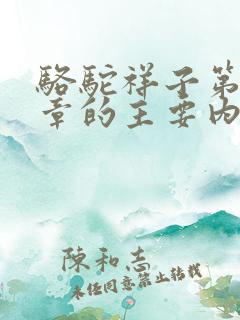 駱駝祥子第
章的主要內
陳和志
未经同意禁止转载